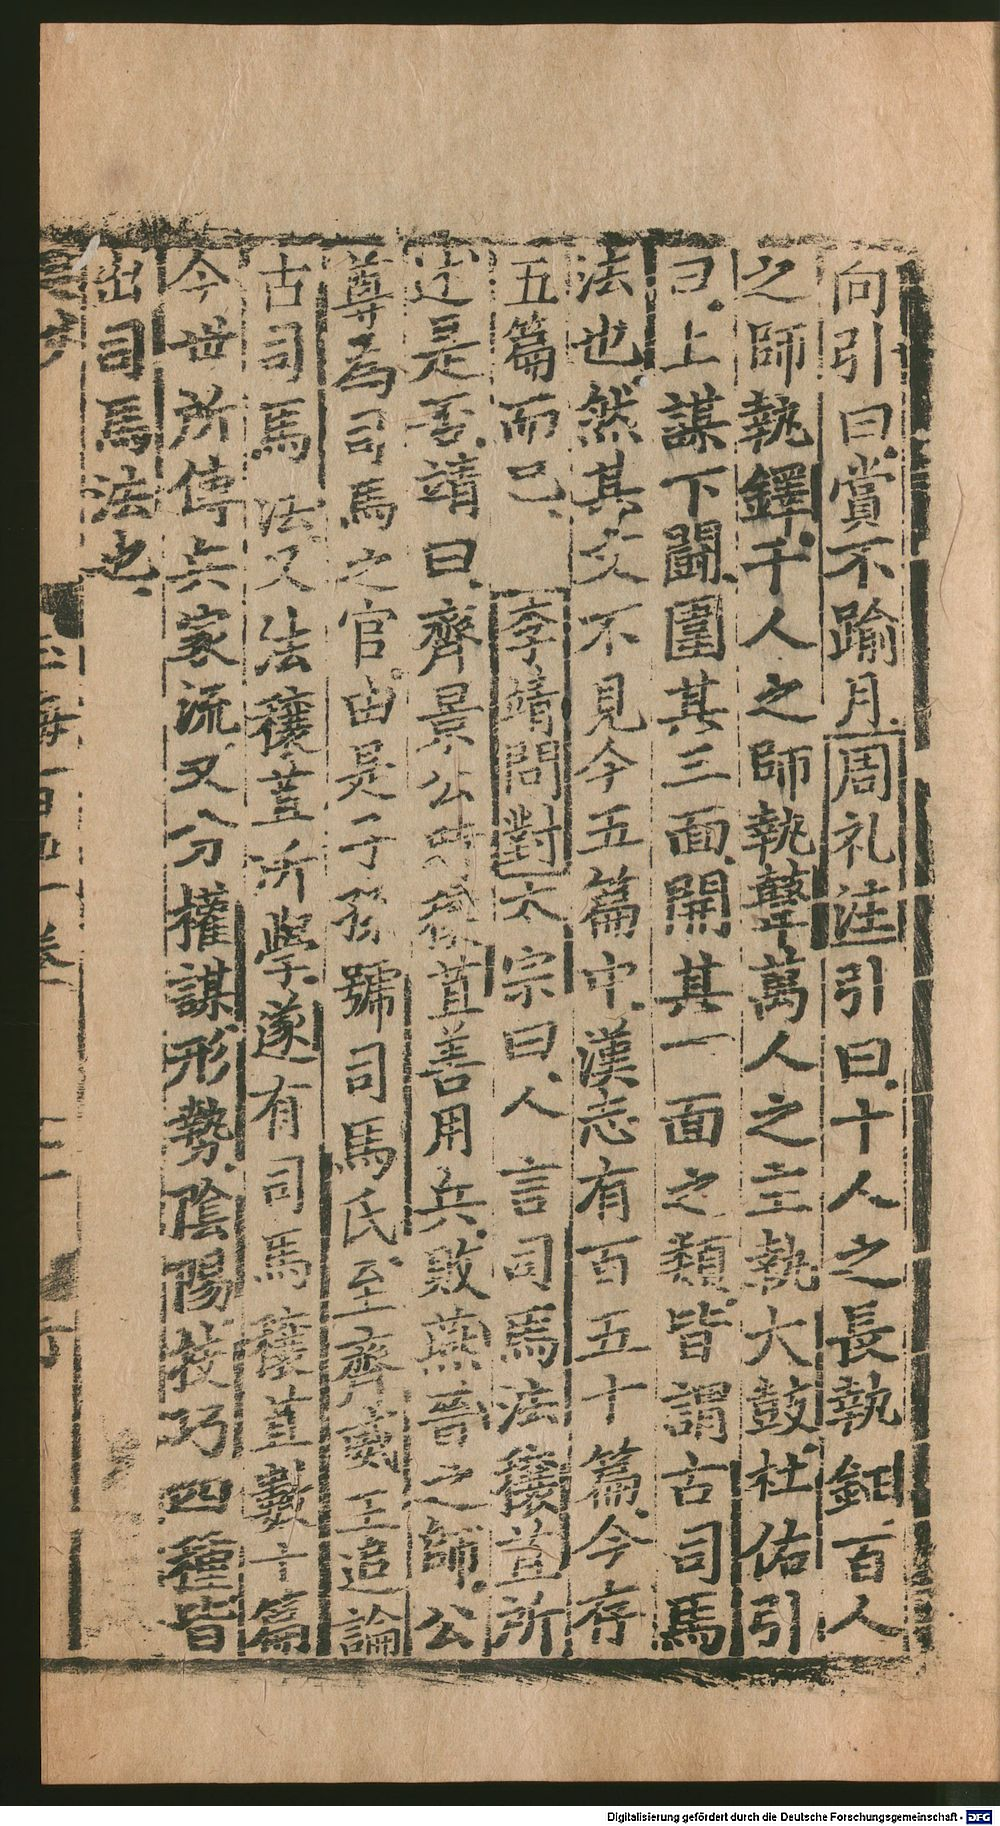 向引曰賞不踰月周礼注引曰十人之長執鉦百人
之師執鐸千人之師執鼙萬人之主執大鼓杜佑引
曰上謀下鬭圍其三面開其一面之類皆謂古司馬
法也然其文不見今五篇中漢志有百五十篇今存
五篇而已 李靖問對太宗曰人言司馬法穰苴所
述是否靖曰齊景公時穰苴善用兵敗燕晉之師公
尊為司馬之官由是子孫號司馬氏至齊威王追論
古司馬法又法穰苴所學遂有司馬穰苴數十篇
今世所傳兵家流又分權謀形勢陰陽技巧四種皆
出司馬法也
玉海一百四十卷
Digitalisierung gefördert durch die Deutsche Forschungsgemeinschaft - DFG